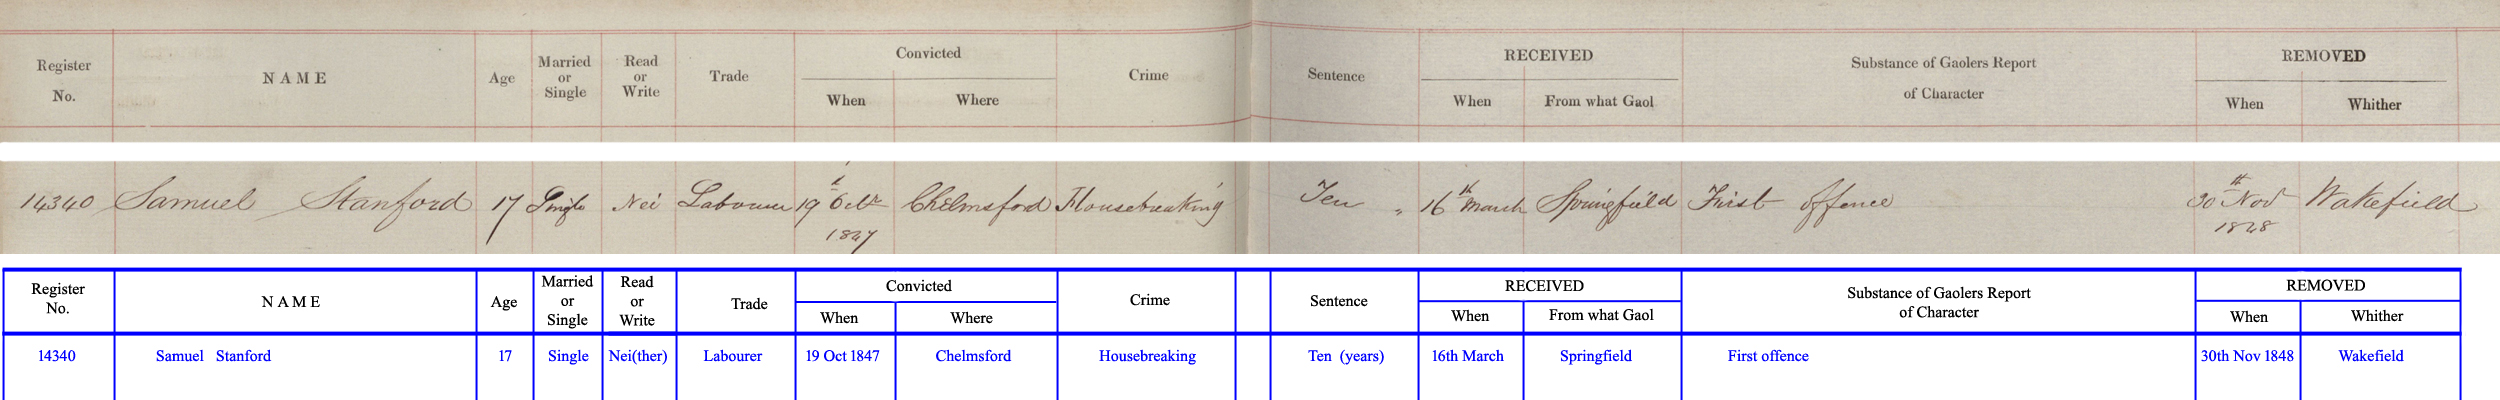 Register No. NAME Age Married or Single Read or Write Trade Convicted When Where Crime Sentence RECEIVED When From what Gaol Substance of Gaolers Report of Character REMOVED When Whither
14340 Samuel Stanford 17 Single Nei Labourer 19th Octr 1847 Chelmsford Housebreaking Ten " 16th March Springfield First offence 30th Nov 1848 Wakefield
Register No. NAME Age Married or Single Read or Write Trade Convicted When Where Crime Sentence RECEIVED When From what Gaol Substance of Gaolers Report of Character REMOVED When Whither
14340 Samuel Stanford 17 Single Nei(ther) Labourer 19 Oct 1847 Chelmsford Housebreaking Ten (years) 16th March Springfield First offence 30th Nov 1848 Wakefield